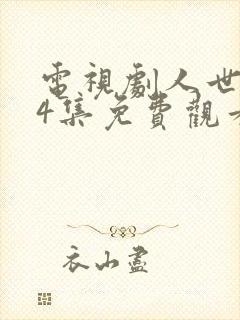 電視劇人世
4集免費觀看
衣山盡